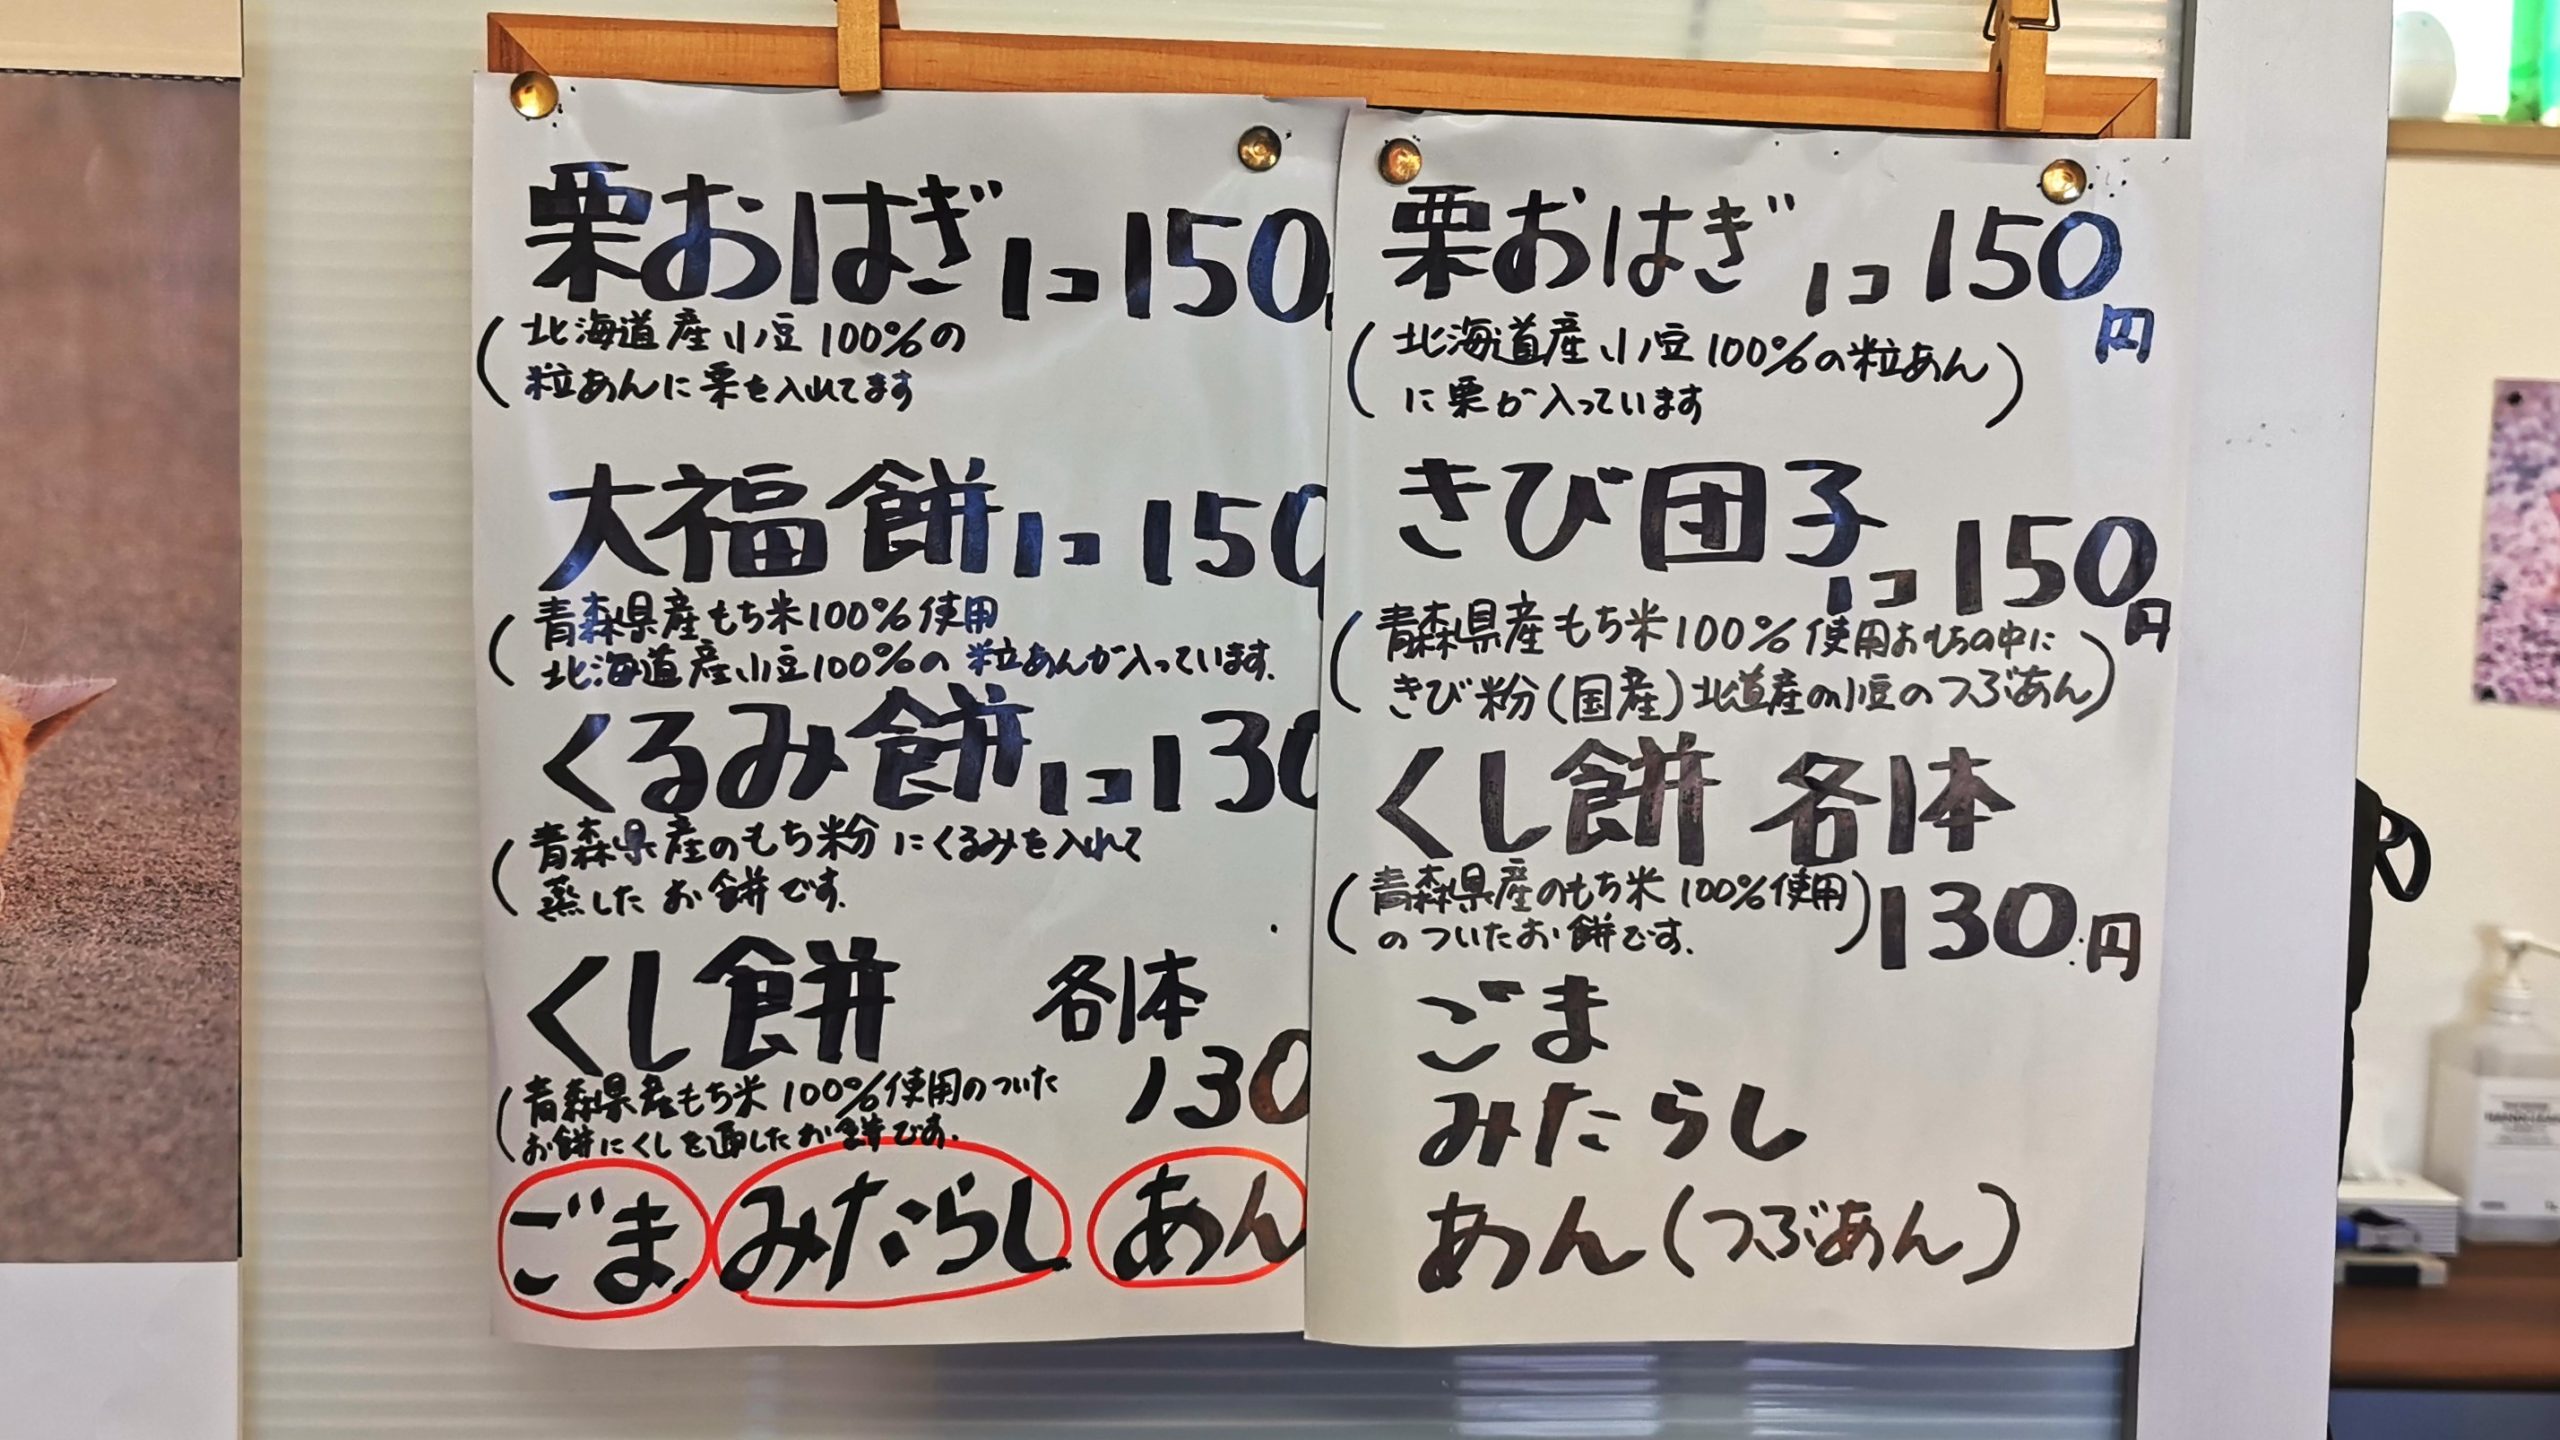 栗おはぎ 1コ 150
(北海道産小豆100%の
粒あんに栗を入れてます
大福餅 1コ 150
(青森県産もち米100%使用
北海道産小豆100%の粒あんが入っています.
くるみ餅 1コ 130
(青森県産のもち米粉にくるみを入れて
蒸したお餅です.
くし餅 各1本
130
(青森県産もち米100%使用のついた
お餅にくしを通したお餅です.
ごま みたらし あん
栗おはぎ 1コ 150円
(北海道産小豆100%の粒あん
に栗が入っています)
きび団子
1コ 150円
(青森県産もち米100%使用おもちの中に
きび粉(国産)北海道産の小豆のつぶあん)
くし餅 各1本
(青森県産のもち米100%使用
のついたお餅です.) 130円
ごま
みたらし
あん(つぶあん)